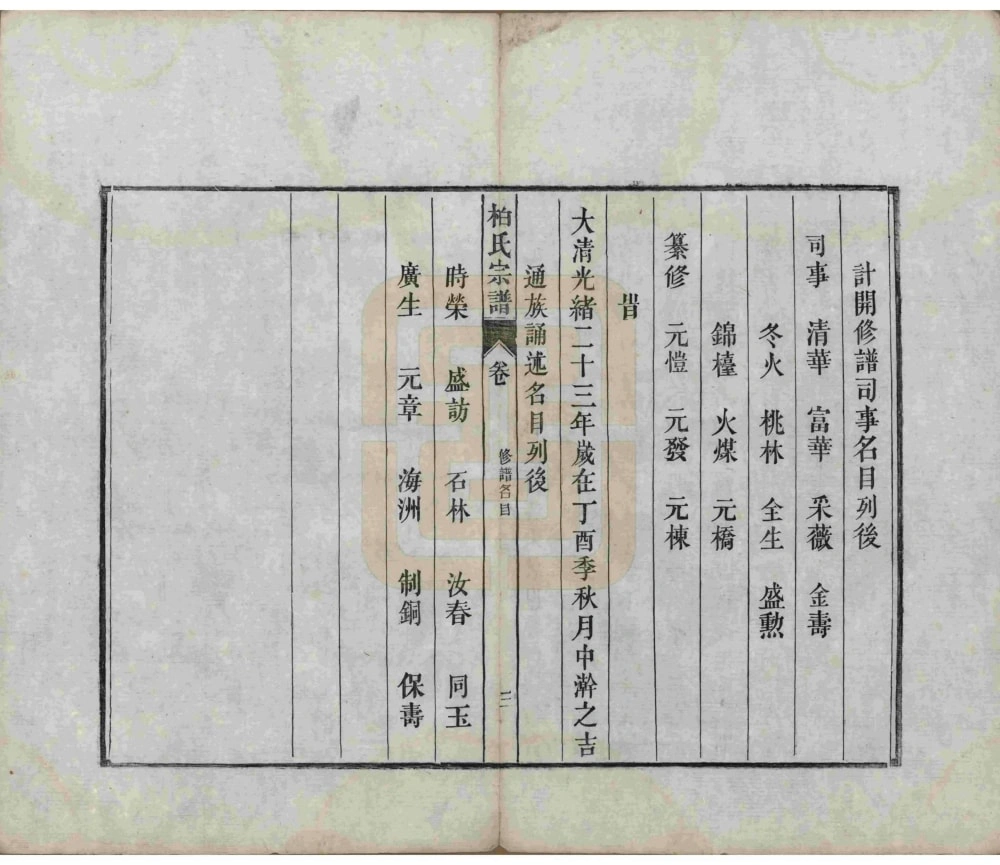 計開修譜司事名目列後
司事 清華 富華 采薇 金壽
冬火 桃林 全生 盛勲
錦檯 火煤 元橋
纂修 元愷 元發 元棟
旹
大清光緒二十三年歲在丁酉季秋月中澣之吉
通族誦述名目列後
柏氏宗譜 卷 修譜名目 二
時榮 盛訪 石林 汝春 同玉
廣生 元章 海洲 制銅 保壽